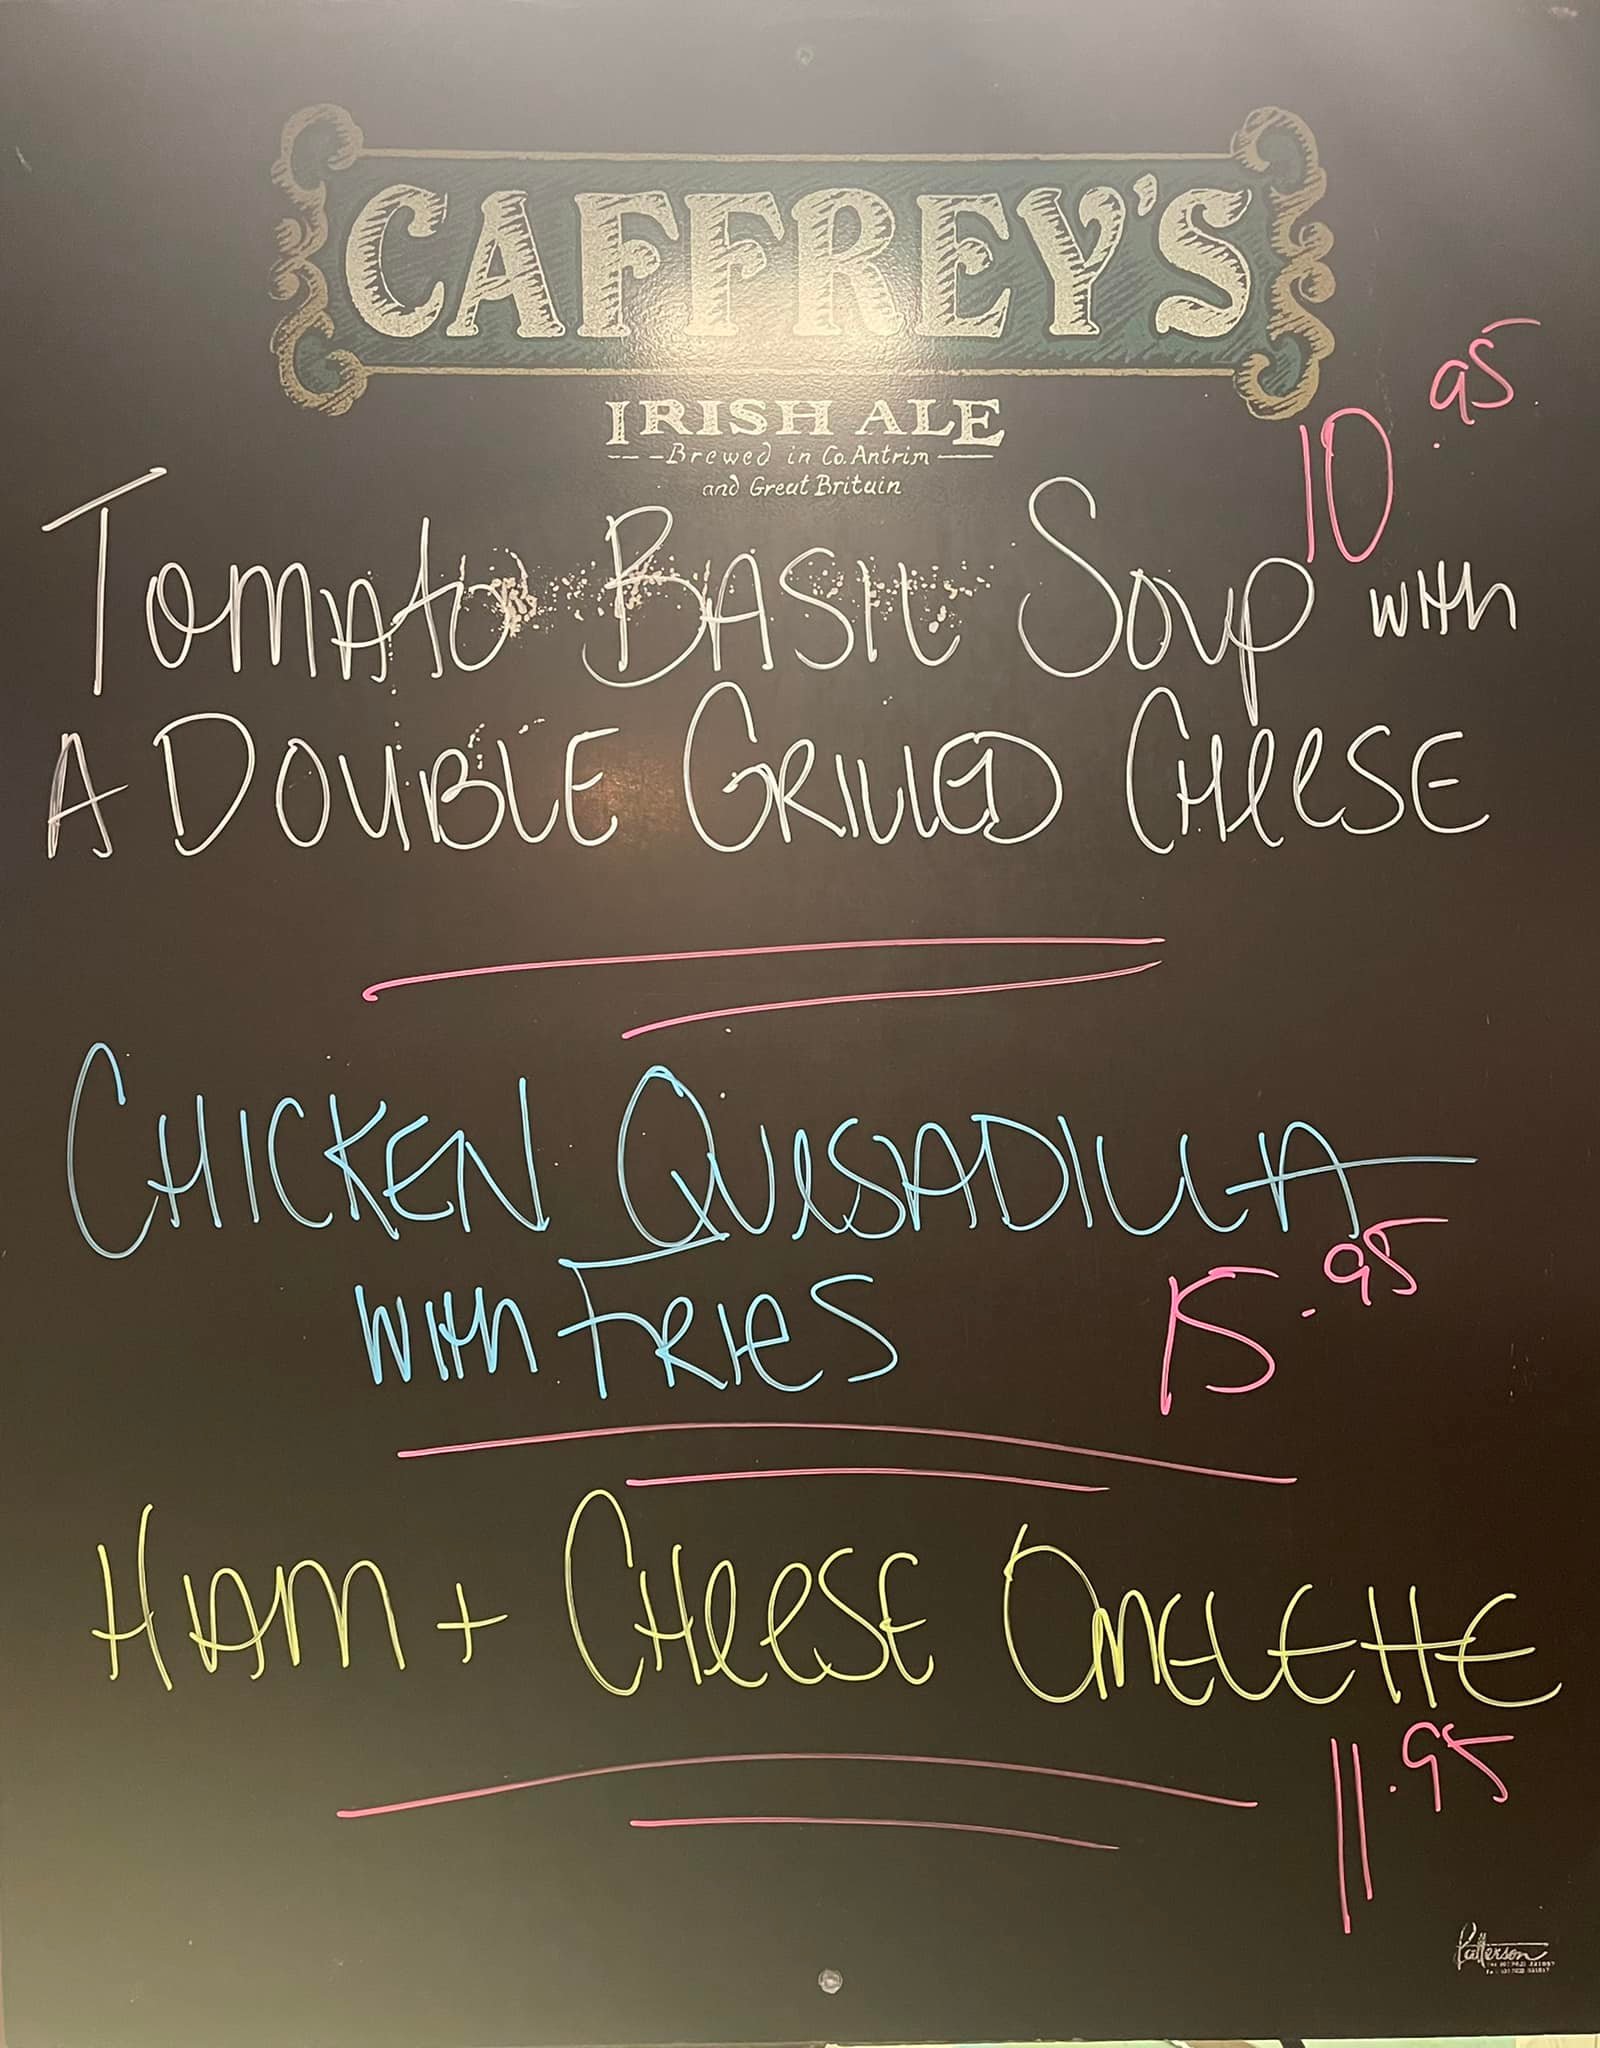 CAFFREY'S
IRISH ALE
Brewed in Co. Antrim
and Great Britain
10.95
TOMATO BASIL SOUP WITH
A DOUBLE GRILLED CHEESE
CHICKEN QUESADILLA
WITH FRIES 15.95
HAM + CHEESE OMELETTE
11.95
Patterson